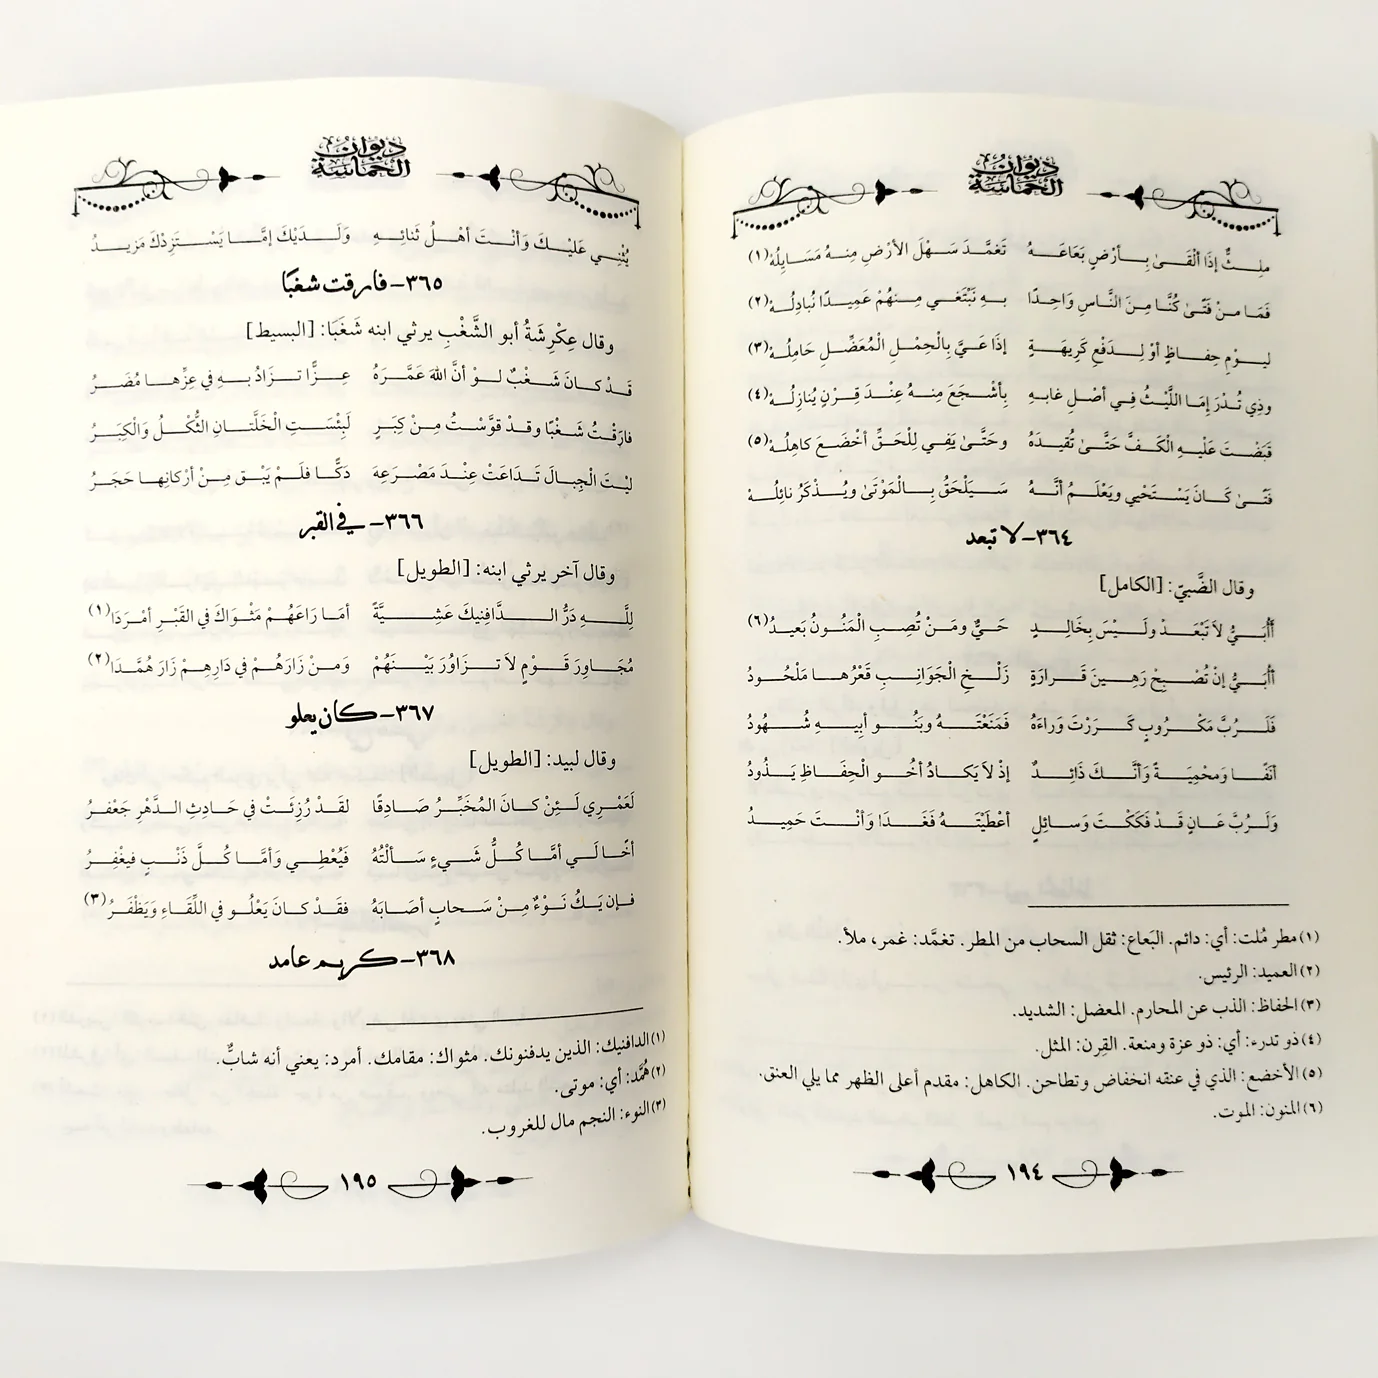 ديوان الحماسة
مُلِثٌّ إِذَا أَلْقَىٰ بِأَرْضٍ بَعَاعَهُ تَغَمَّدَ سَهْلَ الأَرْضِ مِنهُ مَسَايِلُهْ(١)
فَمَا مِنْ فَتًىٰ كُنَّا مِنَ النَّاسِ وَاحِدًا بِهِ نَبْتَغِي مِنهُمْ عَمِيدًا نُبَادِلُهْ(٢)
لِيَوْمِ حِفَاظٍ أَوْ لِدَفْعِ كَرِيهَةٍ إِذَا عَيَّ بِالْحِمْلِ الْمُعَضِّلِ حَامِلُهْ(٣)
وذِي تُدْرَإٍ مَا اللَّيْثُ فِي أَصْلِ غابِهِ بِأَشْجَعَ مِنهُ عِنْدَ قِرْنٍ يُنَازِلُهْ(٤)
قَبَضْتَ عَلَيْهِ الْكَفَّ حَتَّىٰ تُقِيدَهُ وحَتَّىٰ يَفِي لِلْحَقِّ أَخْضَعَ كاهِلُهْ(٥)
فَتًىٰ كَانَ يَسْتَحْيِي ويَعْلَمُ أَنَّهُ سَيَلْحَقُ بِالْمَوْتَىٰ ويُذْكَرُ نائِلُهْ
٣٦٤- لا تبعد
وقال الضَّبيّ: [الكامل]
أَأُبَيُّ لاَ تَبْعَدْ ولَيْسَ بِخَالِدٍ حَيٌّ ومَنْ تُصِبِ الْمَنُونُ بَعِيدُ(٦)
أَأُبَيُّ إِنْ تُصْبِحْ رَهِينَ قَرَارَةٍ زَلْخِ الْجَوَانِبِ قَعْرُها مَلْحُودُ
فَلَرُبَّ مَكْرُوبٍ كَرَرْتَ وَراءَهُ فَمَنَعْتَهُ وبَنُو أَبِيهِ شُهُودُ
أَنَفًا وَمَحْمِيَةً وَأَنَّكَ ذَائِدٌ إِذْ لاَ يَكادُ أَخُو الْحِفَاظِ يَذُودُ
وَلَرُبَّ عَانٍ قَدْ فَكَكْتَ وَسائِلٍ أَعْطَيْتَهُ فَغَدَا وَأَنْتَ حَمِيدُ
(١) مطر مُلث: أي: دائم. البَعاع: ثقل السحاب من المطر. تغمَّد: غمر، ملأ.
(٢) العميد: الرئيس.
(٣) الحفاظ: الذب عن المحارم. المعضل: الشديد.
(٤) ذو تدرء: أي: ذو عزة ومنعة. القِرن: المثل.
(٥) الأخضع: الذي في عنقه انخفاض وتطاحن. الكاهل: مقدم أعلى الظهر مما يلي العنق.
(٦) المنون: الموت.
١٩٤
ديوان الحماسة
يُثْنِي عَلَيْكَ وَأَنْتَ أَهْلُ ثَنائِهِ وَلَدَيْكَ إِمَّا يَسْتَزِدْكَ مَزيدُ
٣٦٥- فارقت شغبًا
وقال عِكْرِشَةُ أبو الشَّغْبِ يرثي ابنه شَغَبًا: [البسيط]
قَدْ كانَ شَغْبٌ لوْ أنَّ اللهَ عَمَّرَهُ عِزًّا تزَادُ بهِ في عِزِّها مُضَرُ
فارَقْتُ شَغْبًا وقدْ قوَّسْتُ مِنْ كِبَرٍ لَبِئْسَتِ الْخَلَّتَانِ الثُّكْلُ وَالْكِبَرُ
ليْتَ الْجِبالَ تَدَاعَتْ عِنْدَ مَصْرَعِهِ دَكًّا فلَمْ يَبْق مِنْ أَرْكانِها حَجَرُ
٣٦٦- في القبر
وقال آخر يرثي ابنه: [الطويل]
لِلَّهِ دَرُّ الدَّافِنِيكَ عَشِيَّةً أمَا رَاعَهُمْ مَثْوَاكَ في القَبْرِ أمْرَدَا(١)
مُجَاوِرَ قَوْمٍ لاَ تزَاوُرَ بَيْنَهُمْ وَمنْ زَارَهُمْ في دَارِهِمْ زَارَ هُمَّدَا(٢)
٣٦٧- كان يعلو
وقال لبيد: [الطويل]
لَعَمْرِي لَئِنْ كانَ المُخَبِّرُ صَادِقًا لقَدْ رُزِئَتْ في حَادِثِ الدَّهْرِ جَعْفَرُ
أخًا لي أمَّا كُلُّ شَيءٍ سَألْتُهُ فَيُعْطِي وَأمَّا كُلَّ ذَنْبٍ فيغْفِرُ
فإن يَكُ نَوْءٌ مِنْ سَحابٍ أصَابَهُ فقَدْ كانَ يَعْلُو في اللِّقَاءِ وَيَظْفَرُ(٣)
٣٦٨- كريم عامد
(١) الدافنيك: الذين يدفنونك. مثواك: مقامك. أمرد: يعني أنه شابٌّ.
(٢) هُمَّد: أي: موتى.
(٣) النوء: النجم مال للغروب.
١٩٥